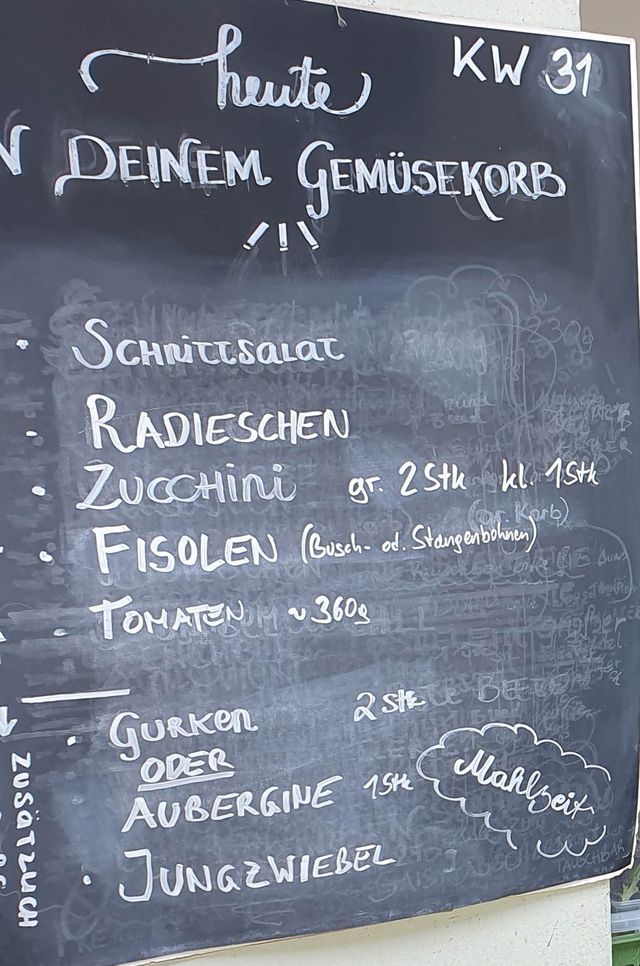 heute KW 31
N DEINEM GEMÜSEKORB
SCHNITTSALAT
RADIESCHEN
ZUCCHINI gr. 2 Stk kl. 1 Stk
FISOLEN (Busch- od. Stangenbohnen)
TOMATEN ~ 360g
GURKEN 2 Stk
ODER
AUBERGINE 1 Stk
Mahlzeit
JUNGZWIEBEL
ZUSÄTZLICH